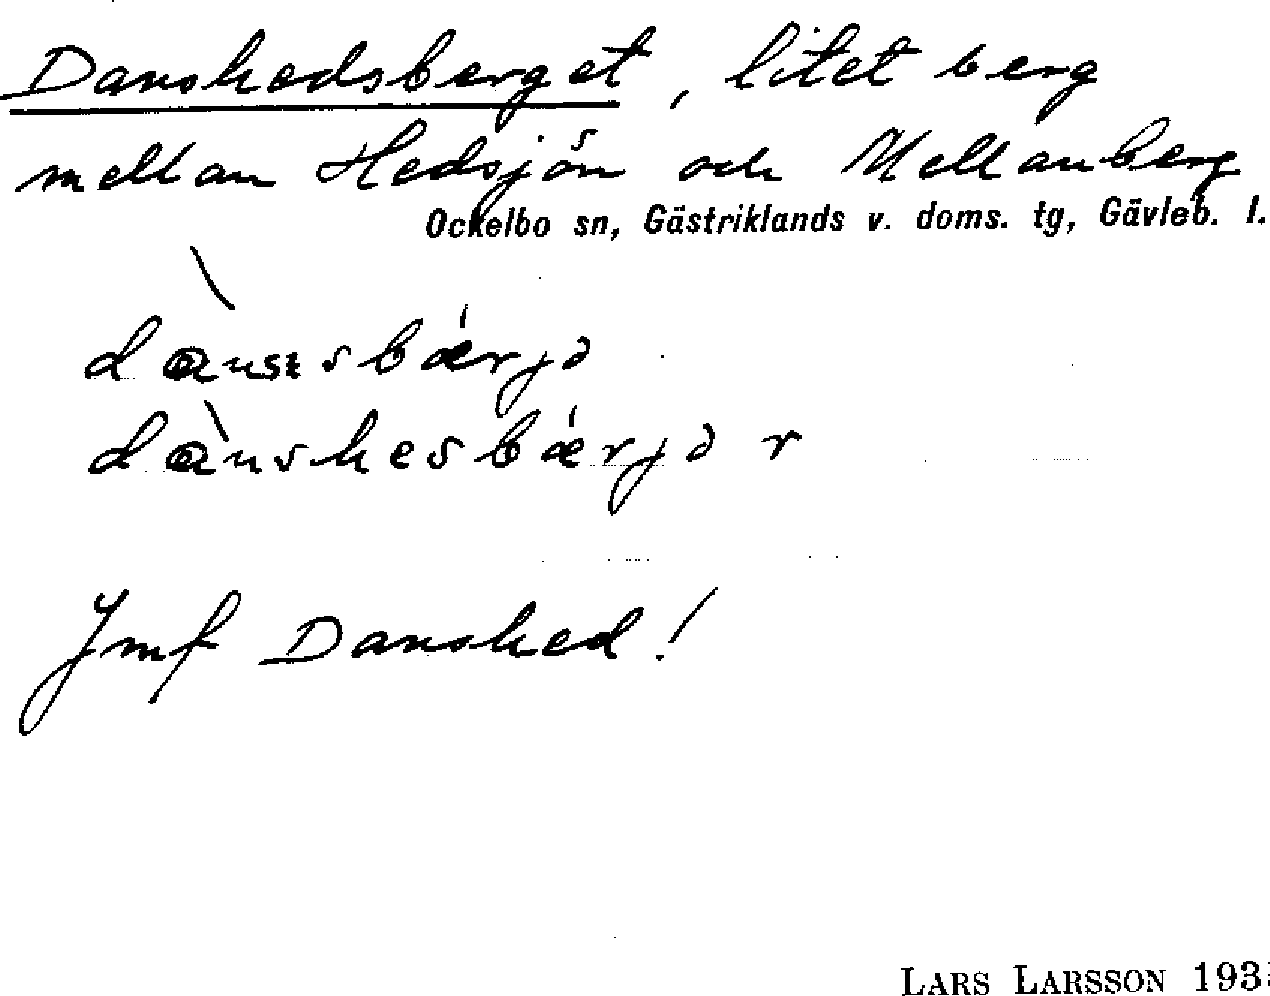 Danshedsberget, litet berg
mellan Hedsjön och Mellanberg
Ockelbo sn, Gästriklands v. doms. tg, Gävleb. l.
Jmf Danshed!
LARS LARSSON 193